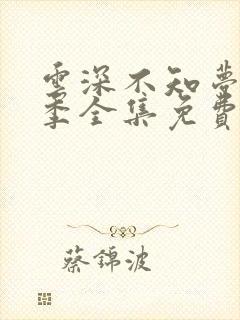 雲深不知夢
季全集免費
蔡錦波